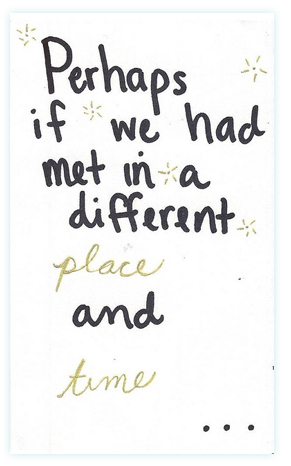 Perhaps
if we had
met in a
different
place
and
time
...